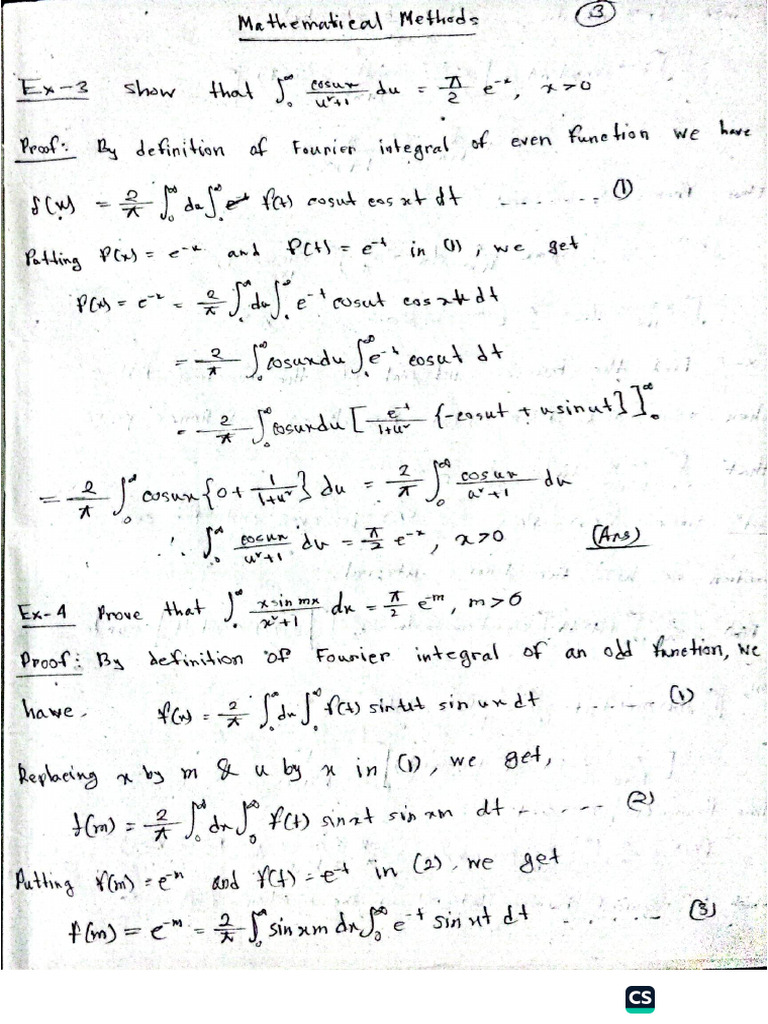 Mathematical Methods
3
Ex-3 Show that ∫₀^∞ cosux/(u²+1) du = π/2 e^-x, x>0
Proof: By definition of Fourier integral of even function we have
f(x) = 2/π ∫₀^∞ du ∫₀^∞ f(t) cosut cos xt dt ........ (1)
Putting f(x) = e^-x and f(t) = e^-t in (1), we get
f(x) = e^-x = 2/π ∫₀^∞ du ∫₀^∞ e^-t cosut cos xt dt
= 2/π ∫₀^∞ cosux du ∫₀^∞ e^-t cosut dt
= 2/π ∫₀^∞ cosux du [e^-t/(1+u²) {-cosut + usinut}]₀^∞
= 2/π ∫₀^∞ cosux {0 + 1/(1+u²)} du = 2/π ∫₀^∞ cosux/(u²+1) du
∴ ∫₀^∞ cosux/(u²+1) du = π/2 e^-x, x>0 (Ans)
Ex-4 Prove that ∫₀^∞ x sin mx/(x²+1) dx = π/2 e^-m, m>0
Proof: By definition of Fourier integral of an odd function, we
have. f(x) = 2/π ∫₀^∞ du ∫₀^∞ f(t) sinut sin ux dt (1)
Replacing x by m & u by x in (1), we get,
f(m) = 2/π ∫₀^∞ dx ∫₀^∞ f(t) sinxt sin xm dt ........ (2)
Putting f(m) = e^-m and f(t) = e^-t in (2), we get
f(m) = e^-m = 2/π ∫₀^∞ sin xm dx ∫₀^∞ e^-t sin xt dt ........ (3)
CS